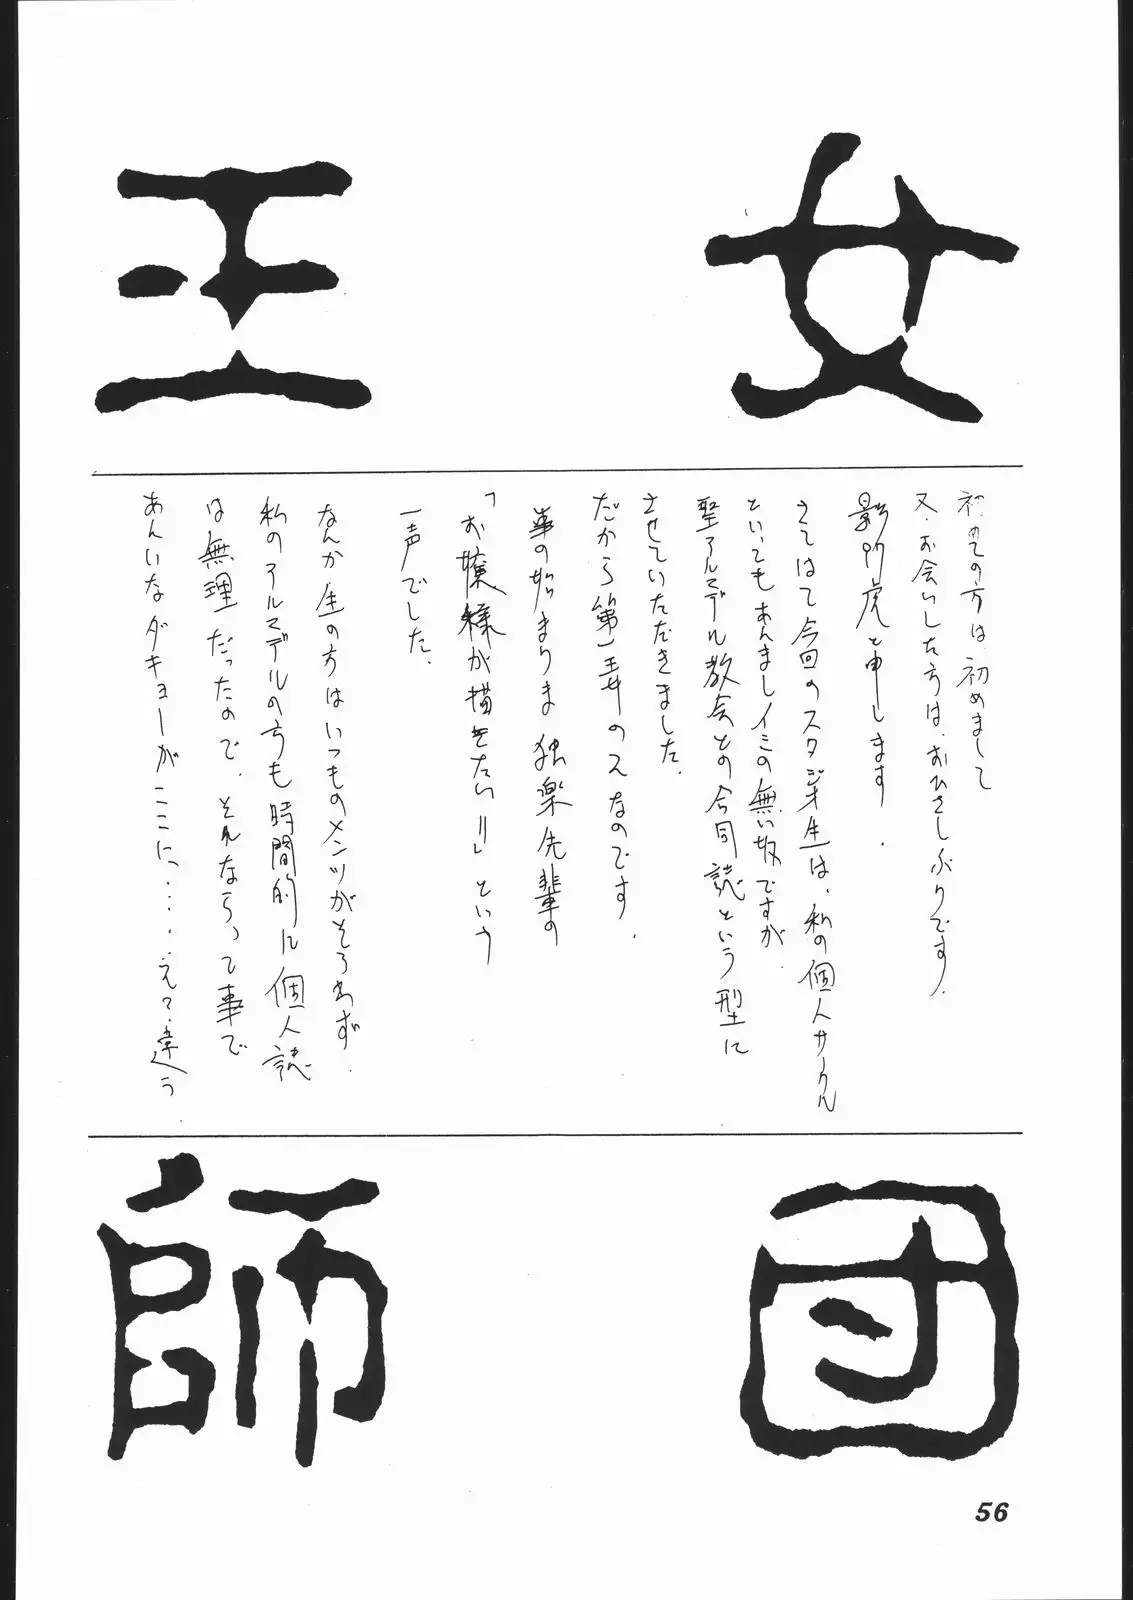 女王
初めての方は初めまして
又、お会いした方は、おひさしぶりです。
影夕虎と申します。
さてはて今回のスタジオ生は、私の個人サークル
といってもあんましイミの無い奴ですが
聖アルマデル教会との合同誌という型に
させていただきました。
だから第一弄のスなのです。
事の始まりま独楽先輩の
「お嬢様が描きたい!!」という
一声でした。
なんか生の方はいつものメンツがそろわず、
私のアルマデルの方も時間的に個人誌
は無理だったので、それならって事で
あんいなダキョーがここに、・・・・えっ、違う
師団
56